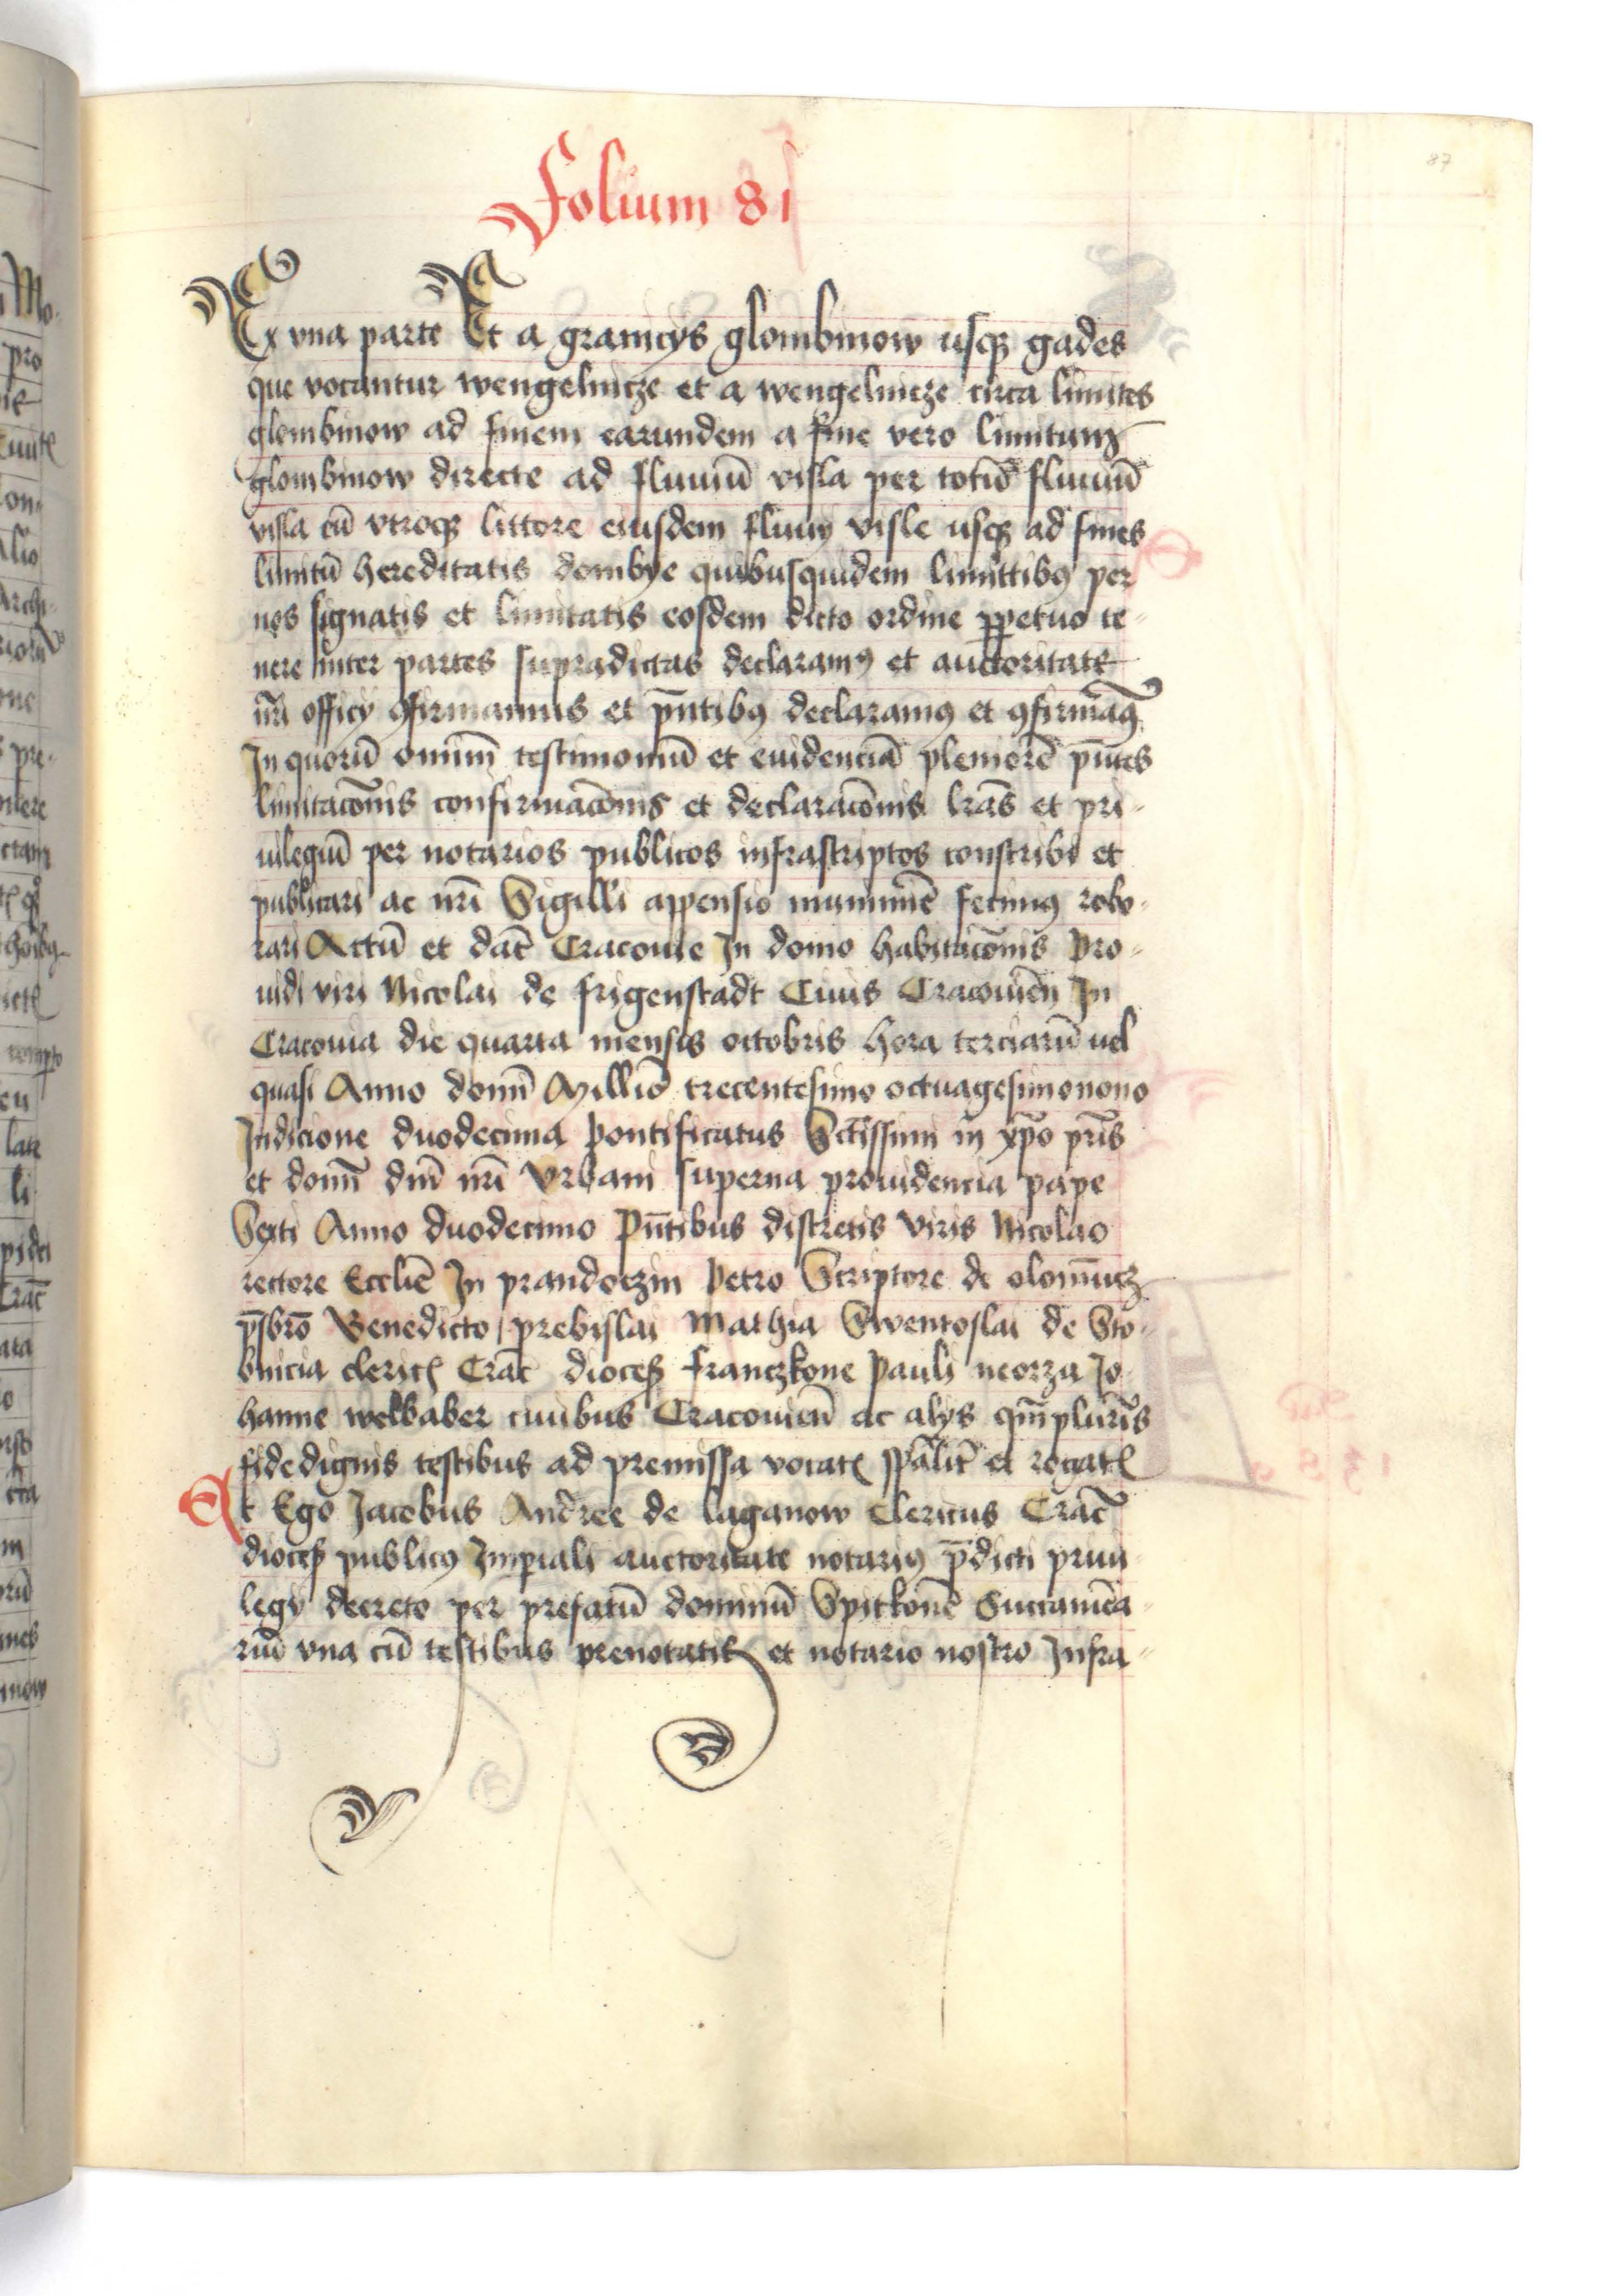 87
Folium 81
Ex vna parte Et a granicys glombinow usqȝ gades
que vocantur wengelnicze et a wengelnicze circa limites
glombinow ad finem earundem a fine vero limitum
glombinow directe ad fluuiū visla per totū fluuiū
visla cū vtroqȝ littore eiusdem fluuy visle usqȝ ad fines
limitū hereditatis dombye quibusquidem limittibꝯ per
nos signatis et limitatis eosdem dicto ordine ꝑpetuo te-
nere inter partes supradictas declaramꝯ et auctoritate
nr̄i officy ꝯfirmamus et pn̄tibꝯ declaramꝯ et ꝯfirmāꝯ
In quorū omnīm testimoniū et euidenciā pleniorē pn̄tes
limitacōnis confirmacōnis et declaracōnis lrās et pri-
uilegiū per notarios publicos infrascriptos conscribi et
publicari ac nr̄i Sigilli appensio munimīe fecimꝯ robo-
rari Actū et dat̄ Cracouie In domo habitacōnis Pro-
uidi viri Nicolai de frigenstadt Ciuis Cracouien̄ In
Cracouia die quarta mensis octobris hora terciarū uel
quasi Anno domī Millio̅ trecentesimo octuagesimonono
Indicione duodecima Pontificatus Sctissimi in xp̄o pr̄is
et domī dn̄i nr̄i Vrbani superna prouidencia pape
Sexti Anno duodecimo Pn̄tibus discretis Viris Nicolao
rectore Ecclīe In prandoczin Petro Scriptore de olomucz
pr̄sbrō Benedicto prebislai Mathia Swentoslai de Sto-
bnicia clericꝭ Crac̄ dioceß franczkone Pauli neorza Jo
hanne welbaber ciuibus Cracouien̄ ac alys qm̄plurīs
fidedignis testibus ad premissa vocatꝭ sp̄alit̄ et rogatꝭ
Et Ego Jacobus Andree de laganow Clericus Crac̄
dioceß publicꝯ Imꝑiali auctoritate notariꝯ p̄dicti priui
legy decreto per prefatū dominū Spitkonē Succamēa-
riū vna cū testibus prenotatis et notario nostro Infra-